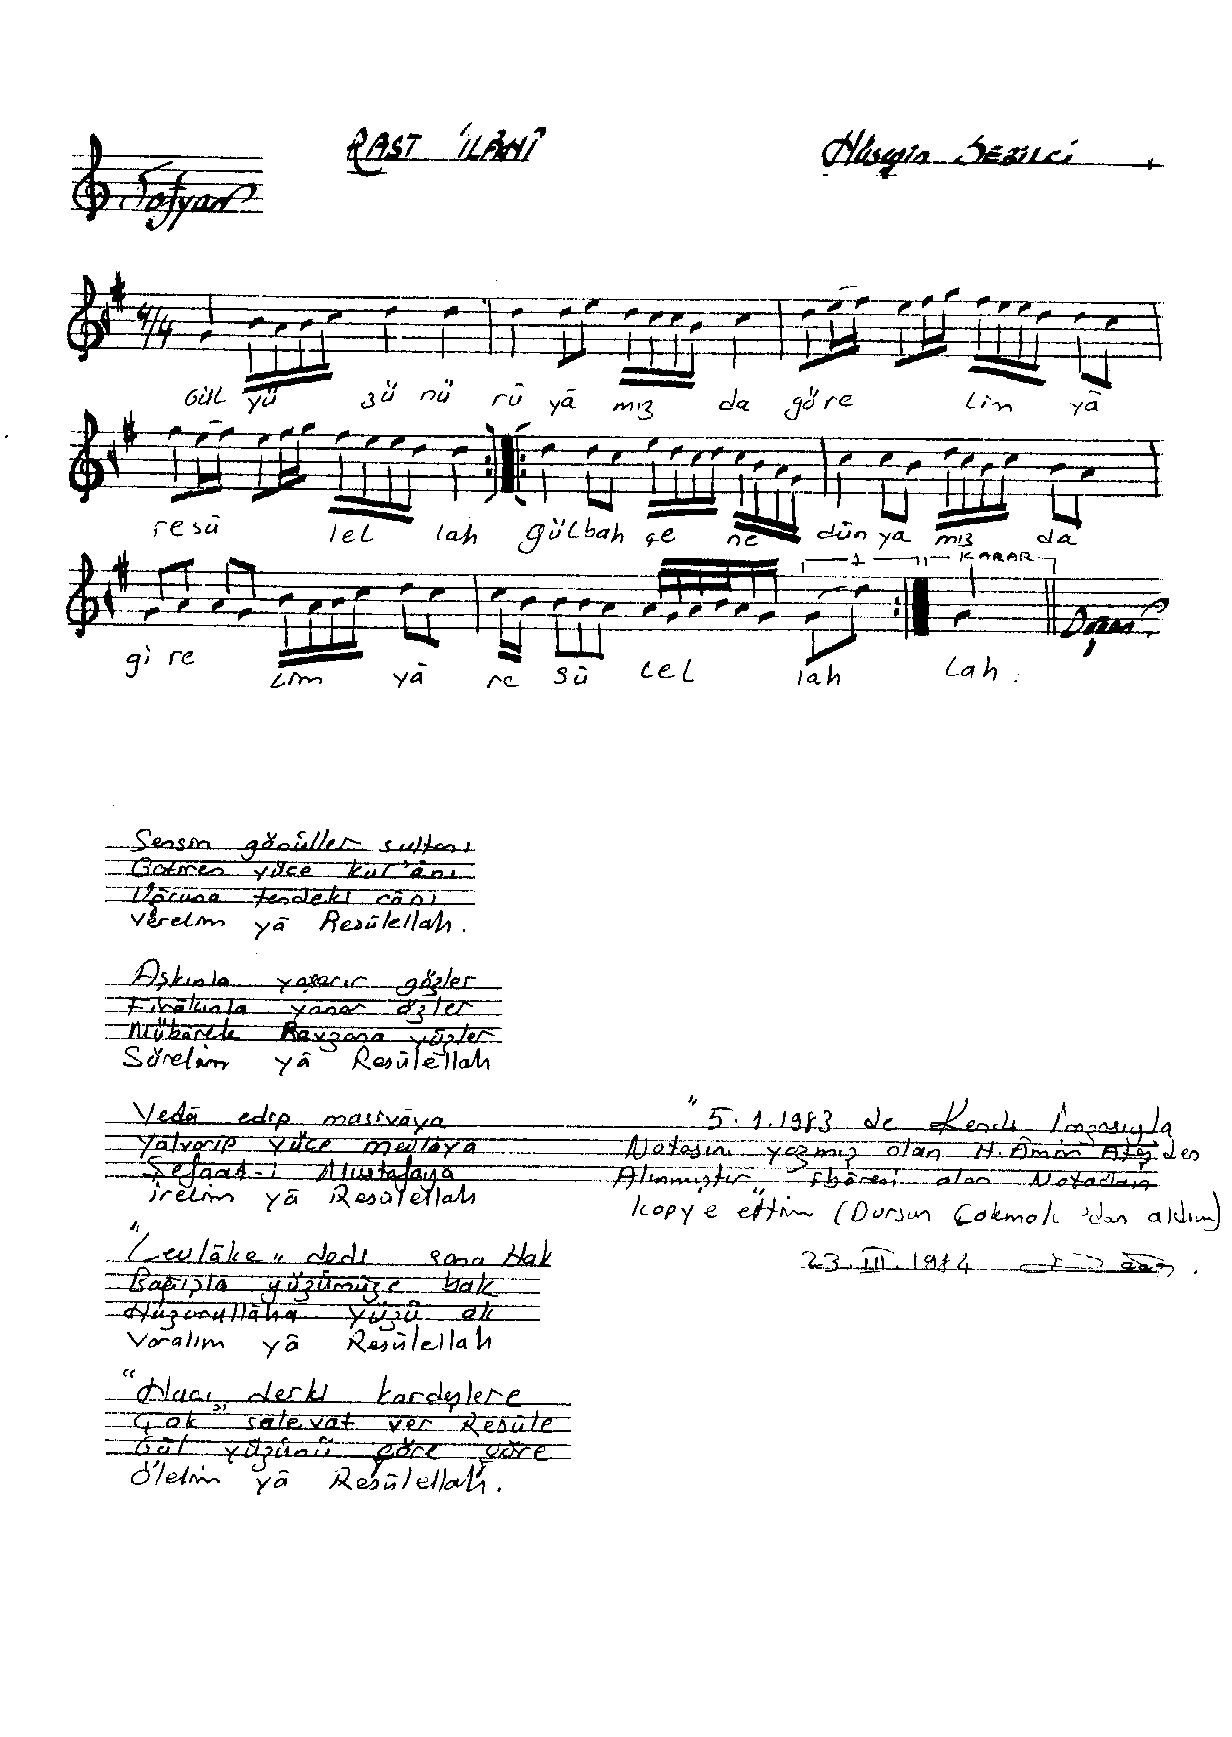 RAST İLÂHÎ
Hüseyin SEBİLCİ
Sofyan
4/4
GÜL yü zü nü rü yâ mız da göre lim yâ
resû lel lah gülbah çe ne dün ya mız da
1 KARAR
gi re Lim yâ re sû Lel lah Lah.
Sensin gönüller sultanı
Getiren yüce kur'ânı
Uğruna tendeki cânı
verelim yâ Resûlellah.
Aşkınla yaşarır gözler
Firâkınla yanar özler
Mübârek Ravzana yüzler
Sürelim yâ Resûlellah
Vedâ edip masivâya
Yalvarıp yüce mevlâya
Şefaat-i Mustafaya
irelim yâ Resûlellah
"Levlâke" dedi sana Hak
Bağışla yüzümüze bak
Huzurullâha yüzü ak
Varalım yâ Resûlellah
"Hacı" derki kardeşlere
Çok salevat ver Resûle
Gül yüzünü göre göre
Ölelim yâ Resûlellah.
"5.1.1983 de Kendi İmzasıyla
Notasını yazmış olan H. Âmir Ateş den
Alınmıştır" İbâresi olan Notadan
kopye ettim (Dursun Çakmak'dan aldım)
23.III.1984